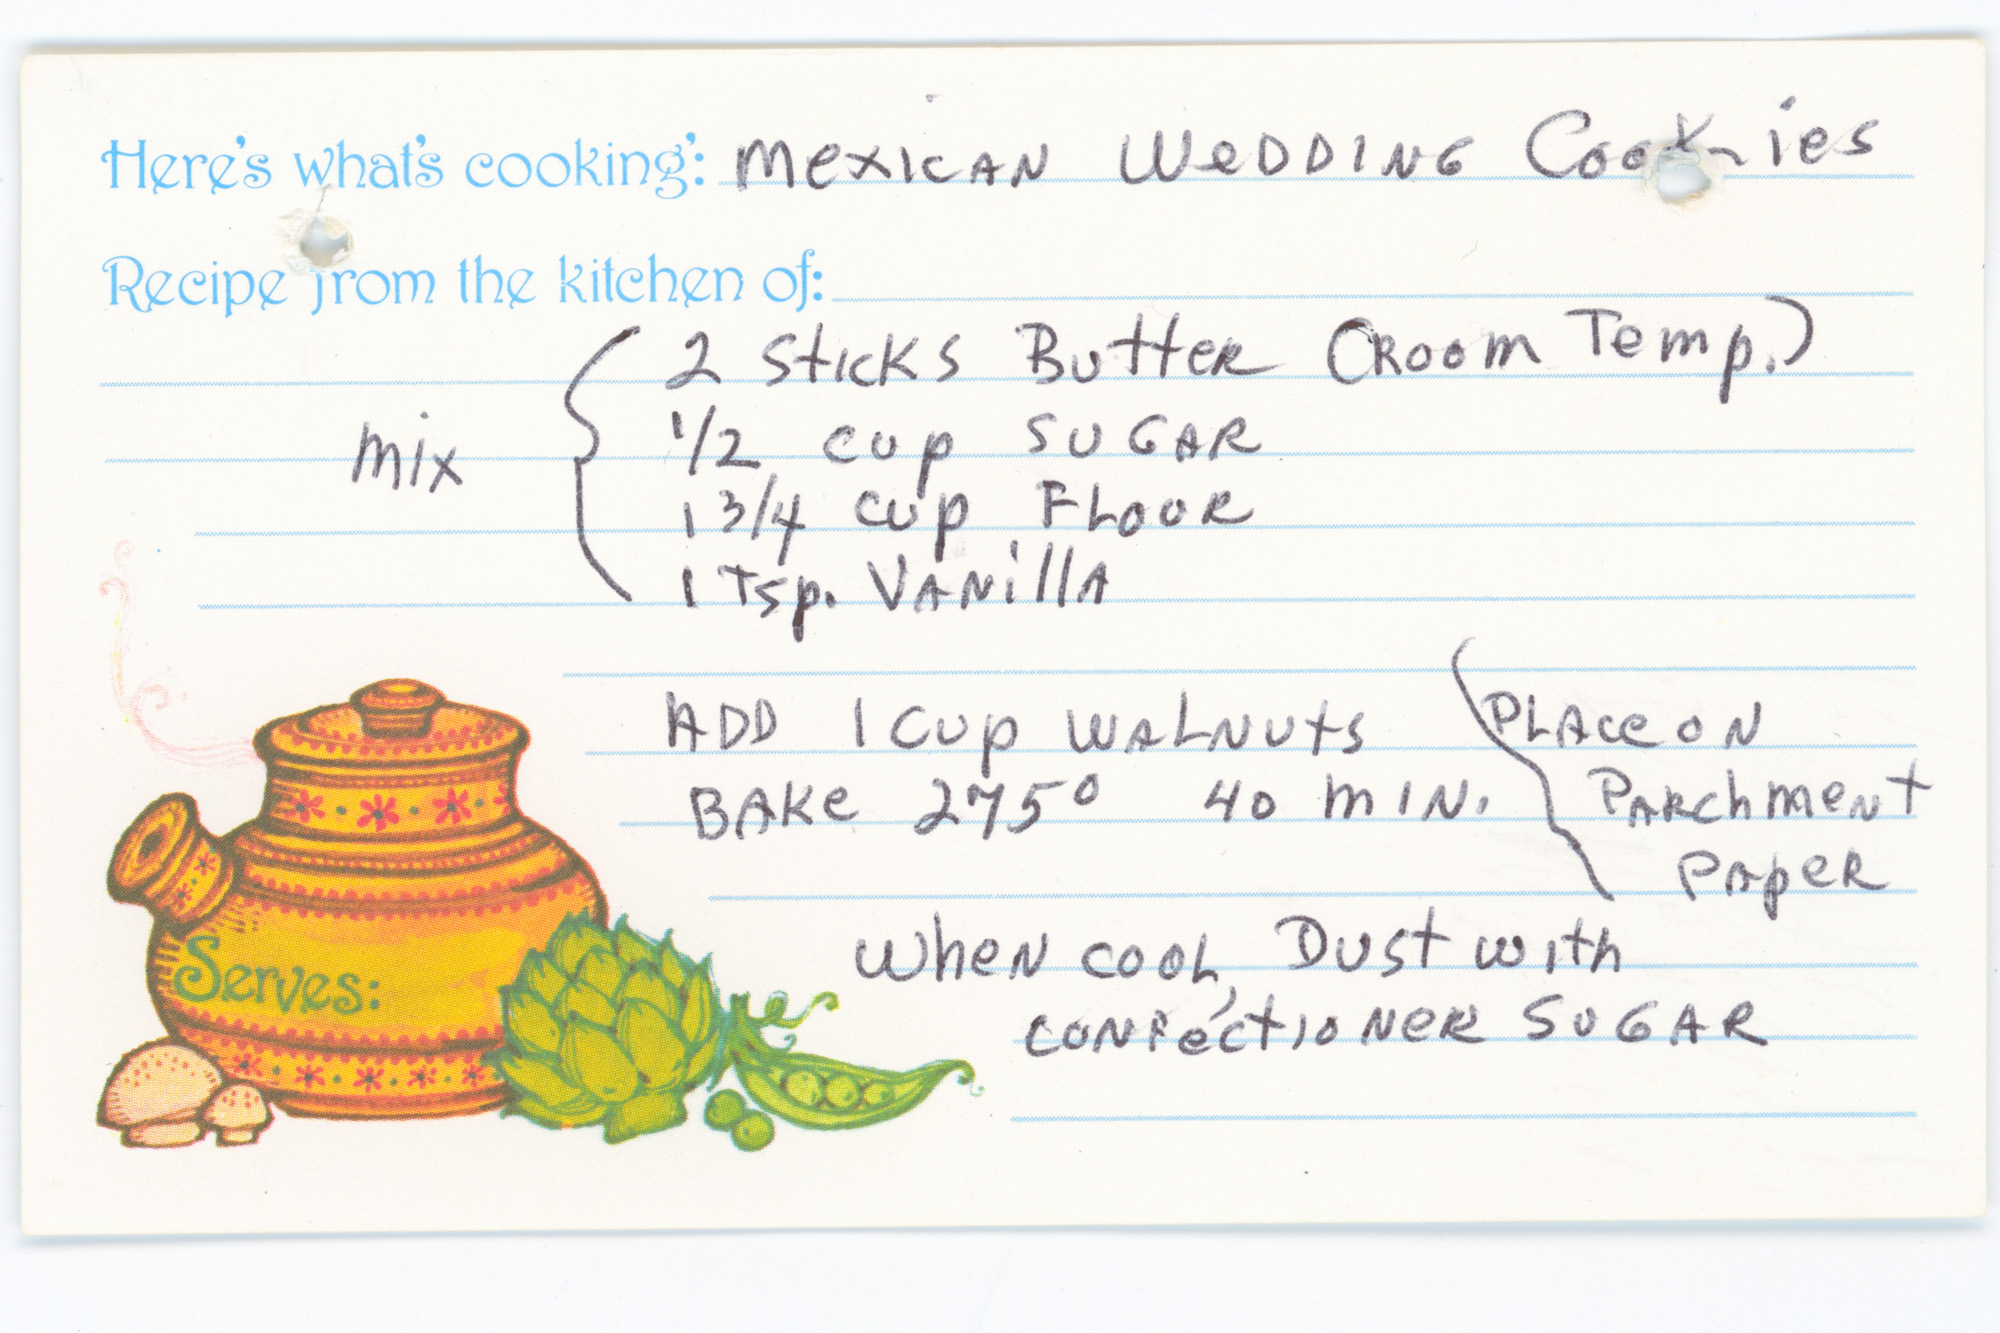 Here's what's cooking: Mexican Wedding Cookies
Recipe from the kitchen of:
2 Sticks Butter (Room Temp.)
mix
1/2 cup SUGAR
1 3/4 cup FLOOR
1 Tsp. VANillA
ADD 1 Cup WALNUTS
PLACE ON
BAKE 275° 40 MIN.
PARCHMENT
PAPER
When cool, Dust with
CONFECTIONER SUGAR
Serves: